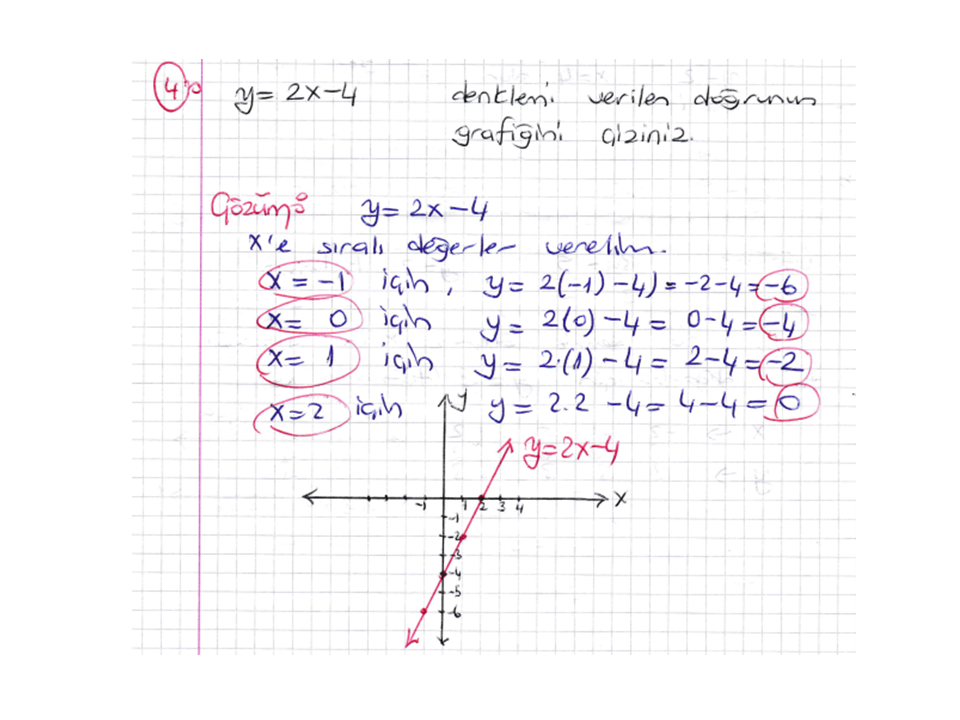 4) y = 2x-4 denklemi verilen doğrunun
grafiğini çiziniz.
Çözüm: y = 2x-4
x'e sıralı değerler verelim.
x = -1 için, y = 2(-1) -4) = -2-4 = -6
x = 0 için y = 2(0) -4 = 0-4 = -4
x = 1 için y = 2.(1) -4 = 2-4 = -2
x = 2 için y = 2.2 -4 = 4-4 = 0
y
y = 2x-4
-1 1 2 3 4 x
-1
-2
-3
-4
-5
-6